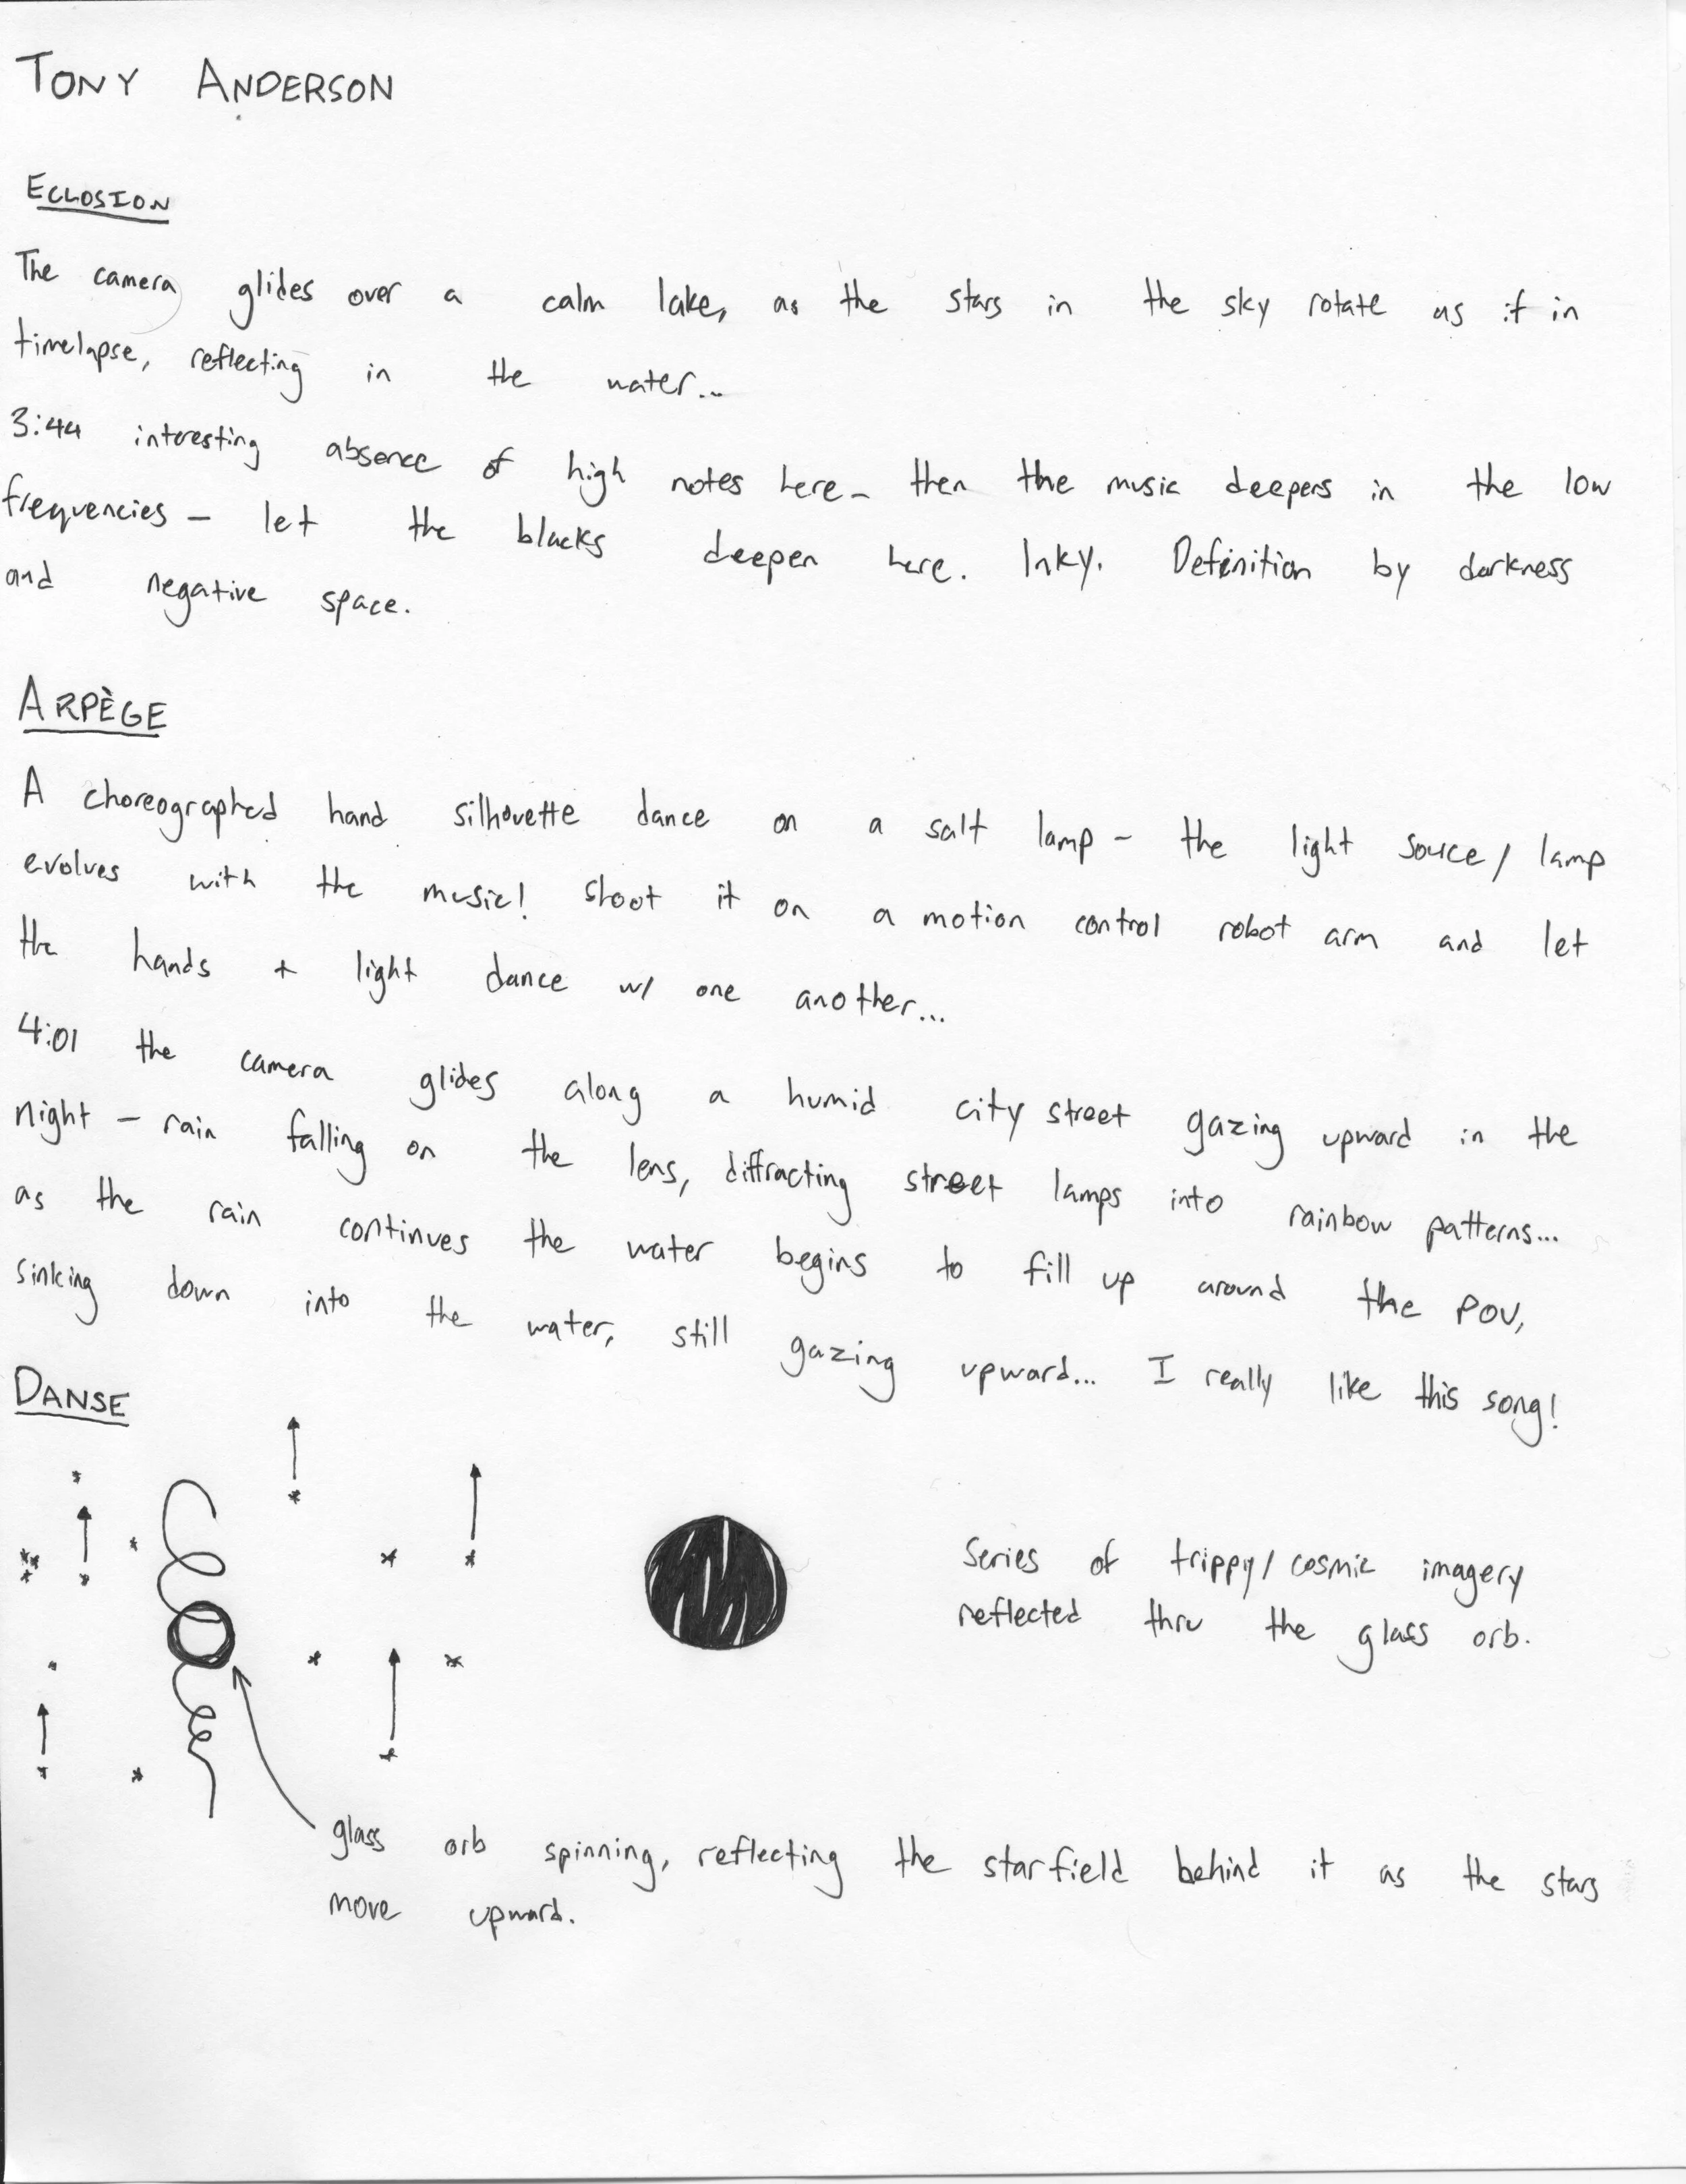 TONY ANDERSON
ECLOSION
The camera glides over a calm lake, as the stars in the sky rotate as if in
timelapse, reflecting in the water...
3:44 interesting absence of high notes here - then the music deepers in the low
frequencies - let the blacks deepen here. Inky. Definition by darkness
and negative space.
ARPÈGE
A choreographed hand silhouette dance on a salt lamp - the light souce/lamp
evolves with the music! Shoot it on a motion control robot arm and let
the hands + light dance w/ one another...
4:01 the camera glides along a humid city street gazing upward in the
night - rain falling on the lens, diffracting street lamps into rainbow patterns...
as the rain continues the water begins to fill up around the POV,
sinking down into the water, still gazing upward... I really like this song!
DANSE
Series of trippy/cosmic imagery
reflected thru the glass orb.
glass orb spinning, reflecting the starfield behind it as the stars
move upward.